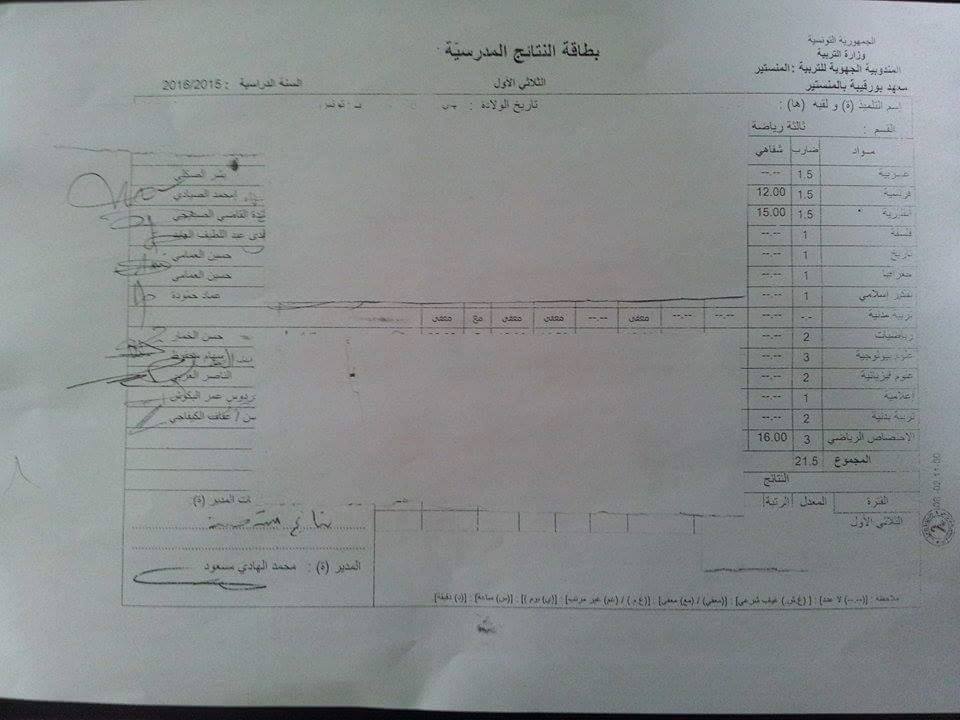 الجمهورية التونسية
وزارة التربية
المندوبية الجهوية للتربية : المنستير
معهد بورقيبة بالمنستير
بطاقة النتائج المدرسيّة
الثلاثي الأول
السنة الدراسية : 2016/2015
إسم التلميذ (ة) و لقبه (ها) :
تاريخ الولادة :
القسم : ثالثة رياضة
مواد ضارب شفاهي
عربية 1.5 --.--
فرنسية 1.5 12.00 محمد الصيادي
انقليزية 1.5 15.00
فلسفة 1 --.-- عبد اللطيف
تاريخ 1 --.-- حسين العمامي
جغرافيا 1 --.-- حسين العمامي
تفكير إسلامي 1 --.-- عماد حمودة
تربية مدنية --.-- --.-- --.-- معفى --.-- معفى معفى مع معفى
رياضيات 2 --.-- حسن الخمار
علوم بيولوجية 3 --.-- سهام
علوم فيزيائية 2 --.-- الناصر
إعلامية 1 --.-- عمر البكوش
تربية بدنية 2 --.--
الاختصاص الرياضي 3 16.00
المجموع 21.5
النتائج
الفترة المعدل الرتبة
الثلاثي الأول
المدير (ة) :
المدير (ة) : محمد الهادي مسعود
ملاحظة : [(--.--) لا عدد] ; [(غ.ش) غياب شرعي] ; [(معفي) / (مع) معفى] ; [(غ.م) / (غم) غير مرتب] ; [(ي) يوم] ; [(س) ساعة] ; [(د) دقيقة]